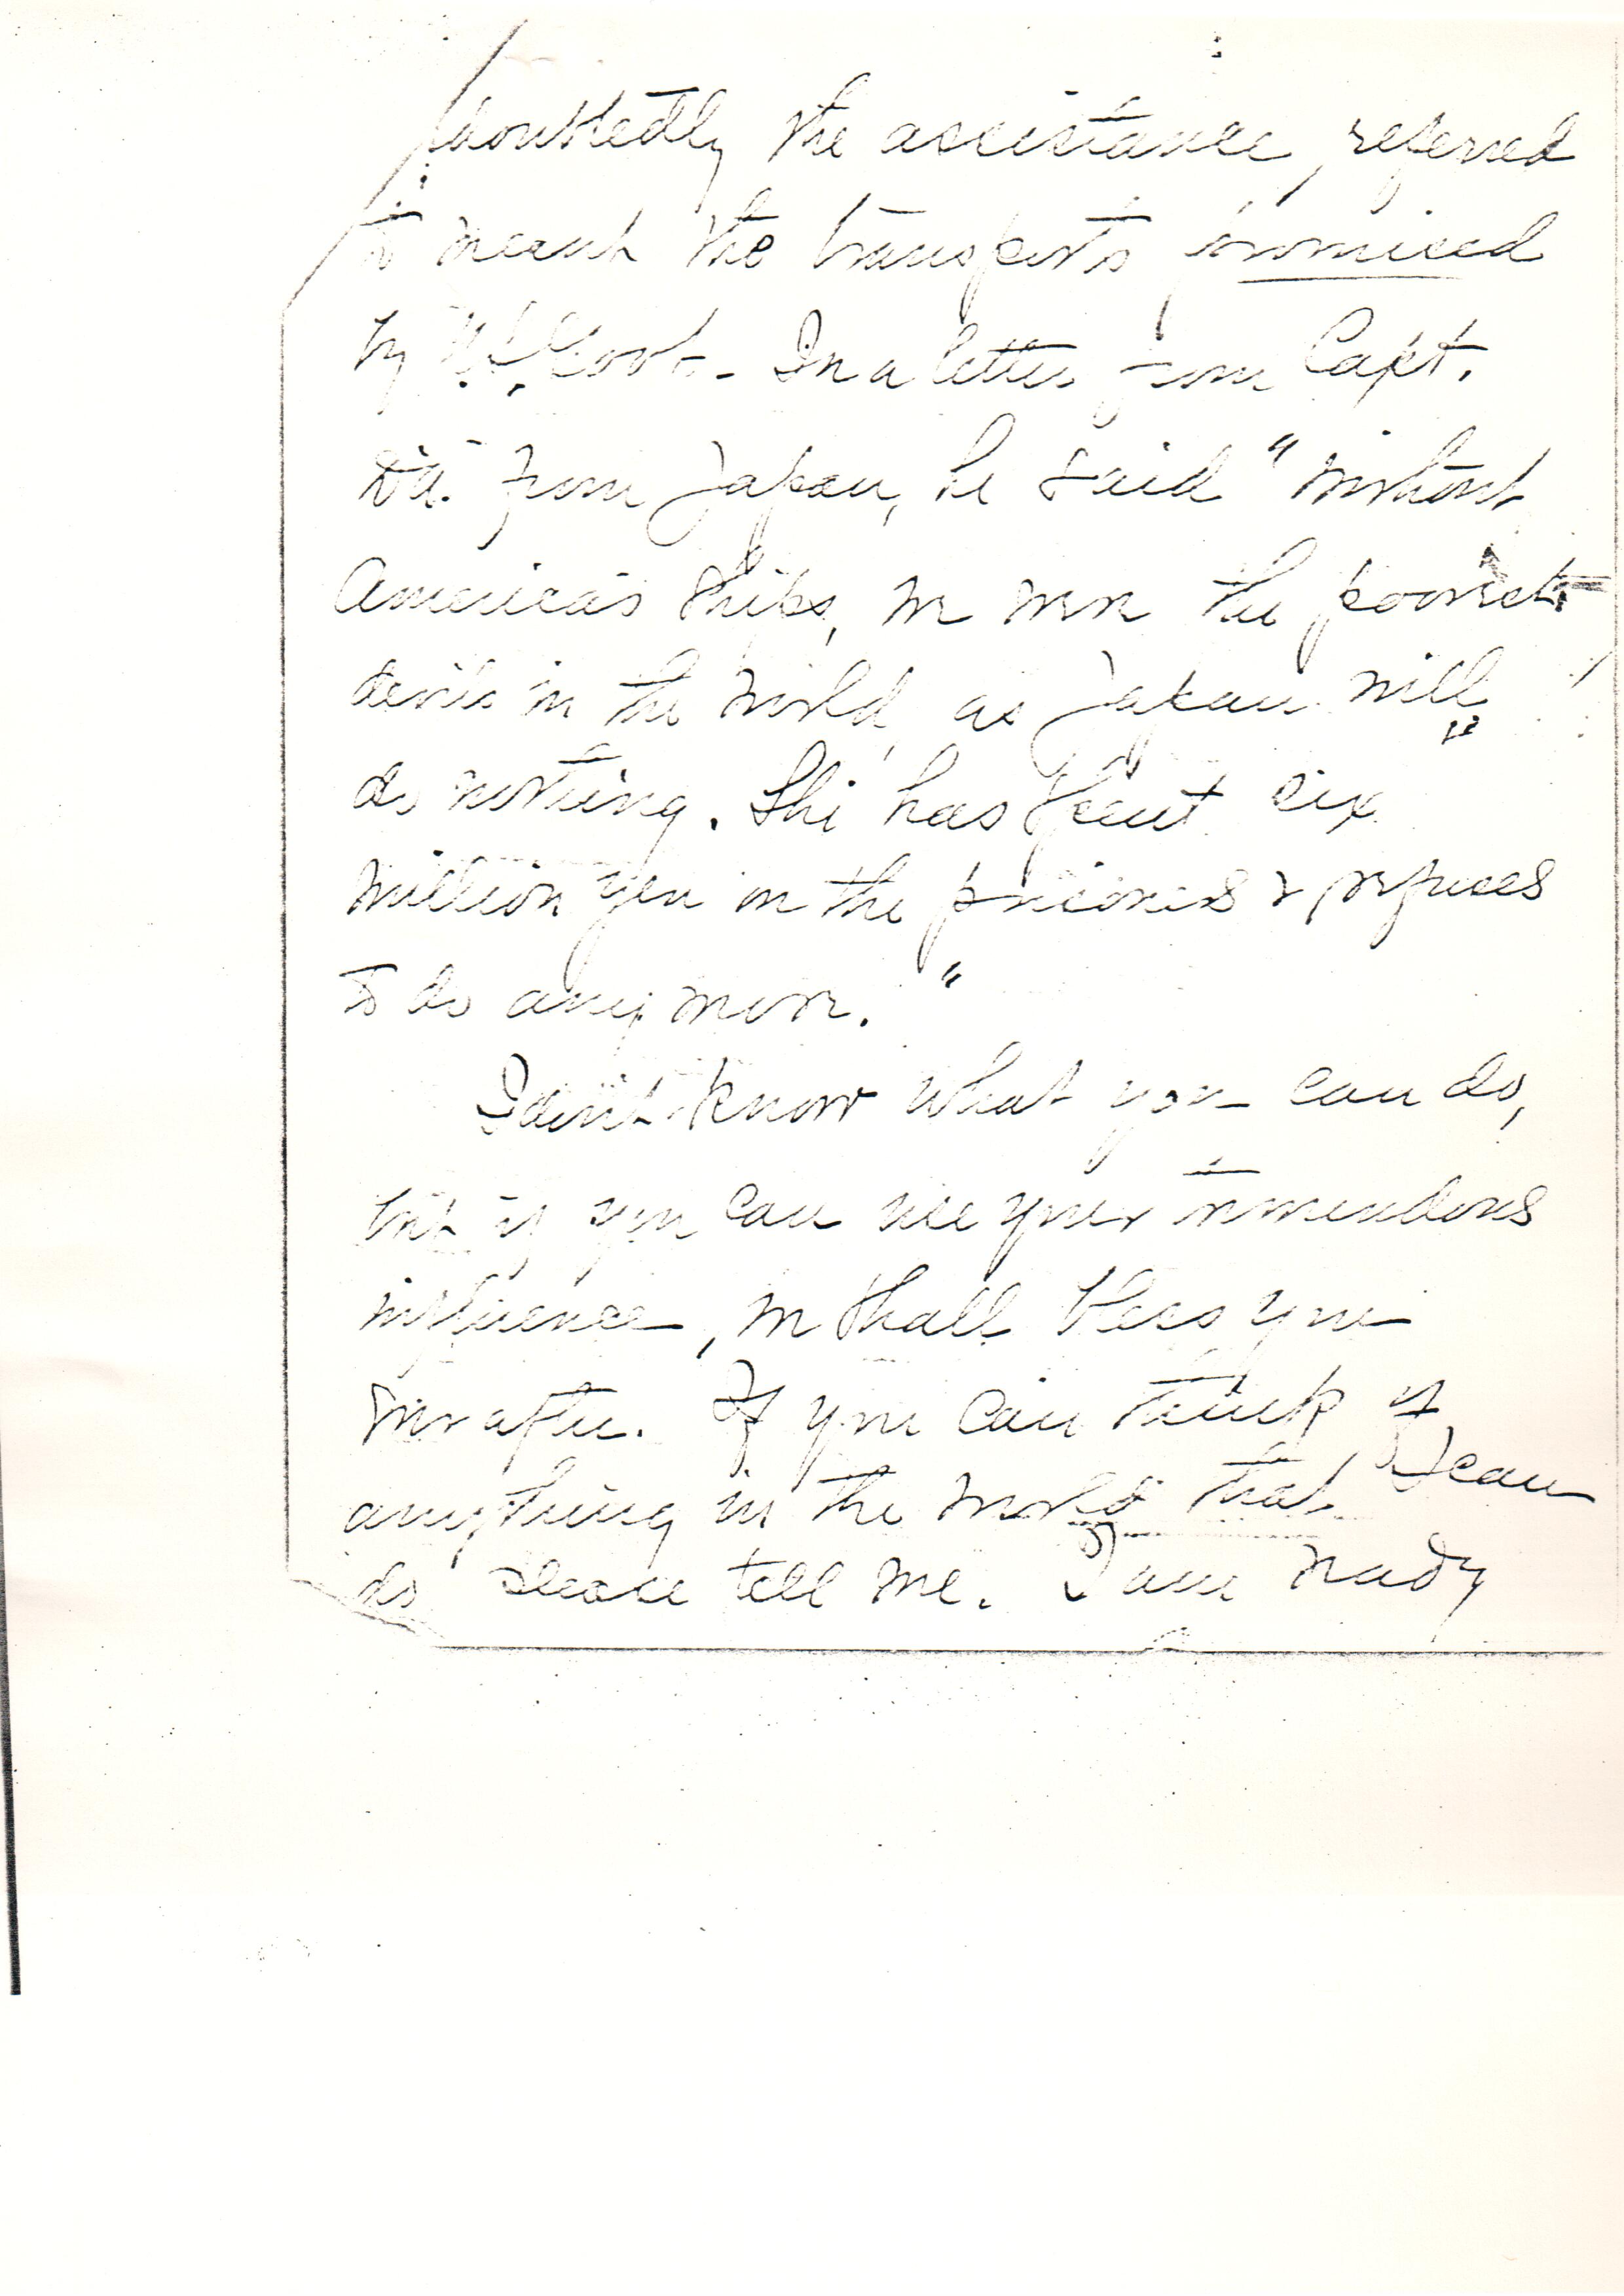 doubtedly the assistance, referred
to meant the transports promised
by In a letter from Capt.
from Japan, he said "without
America's ships, we were the poorest
devils in the world, as Japan will
do nothing. She has spent six
million yen on the prisoners & refuses
to do any more."
I don't know what you can do,
but if you can use your tremendous
influence, we shall bless you
ever after. If you can think of
anything in the world that I can
do please tell me. I am ready